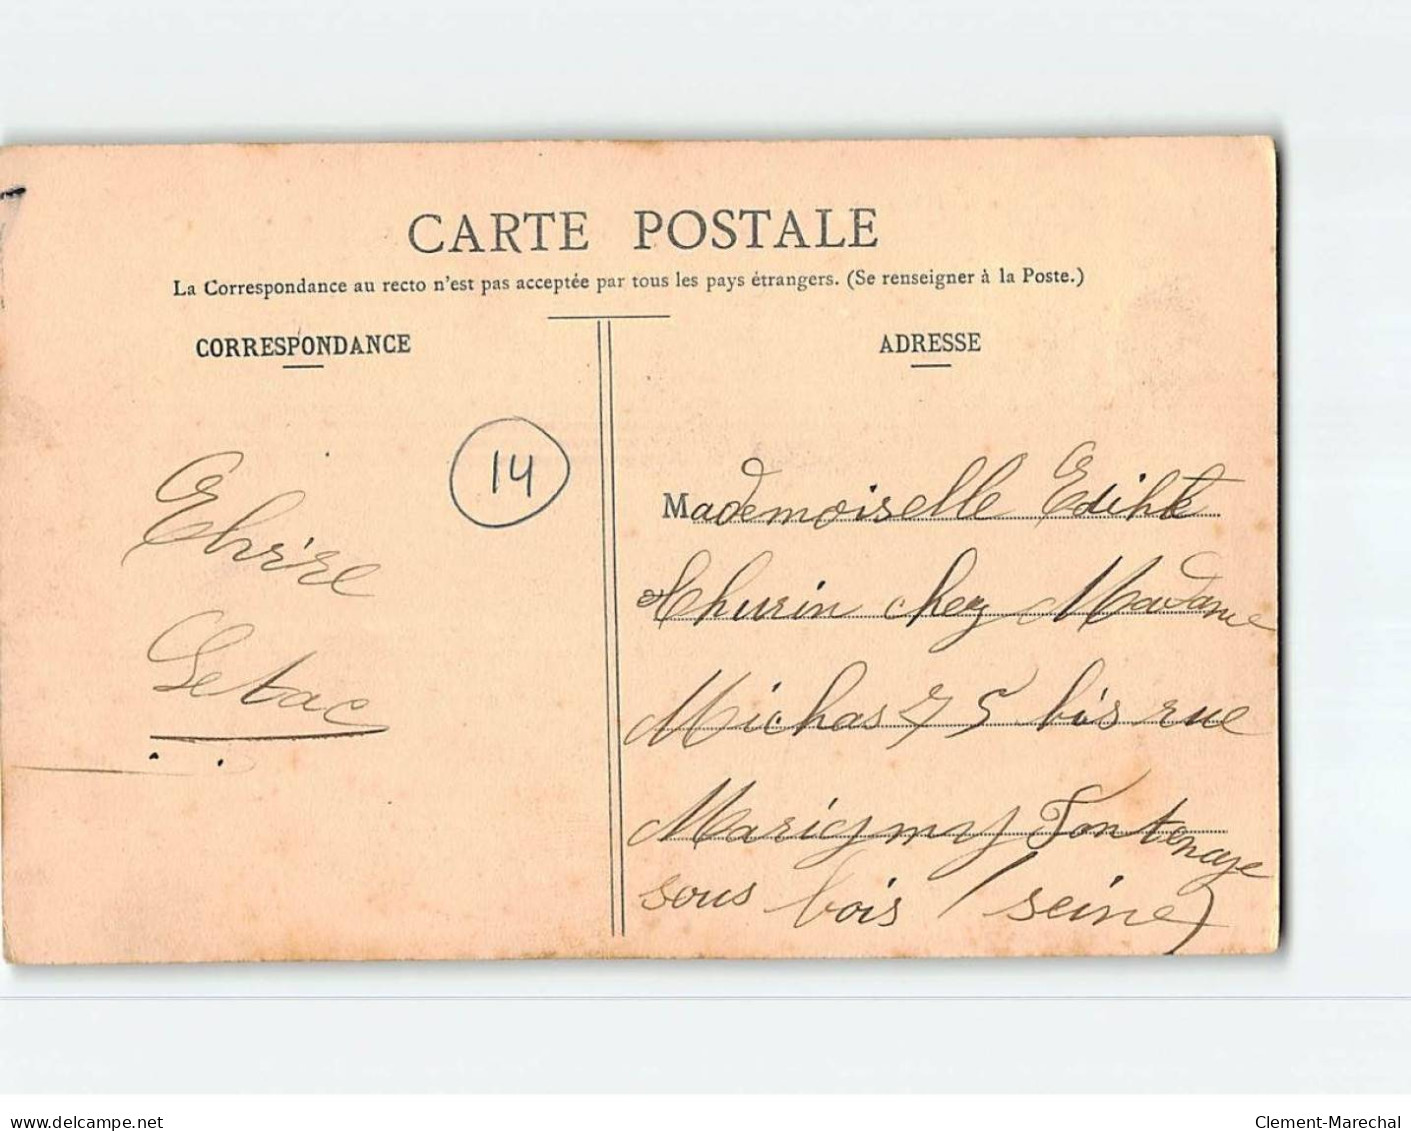 CARTE POSTALE
La Correspondance au recto n'est pas acceptée par tous les pays étrangers. (Se renseigner à la Poste.)
CORRESPONDANCE
ADRESSE
14
Letac
Mademoiselle Edihte
Thurin chez Madame
Michas 75 bis rue
Marigmy Fontenaye
sous bois (seine)
delcampe.net
Clement-Marechal